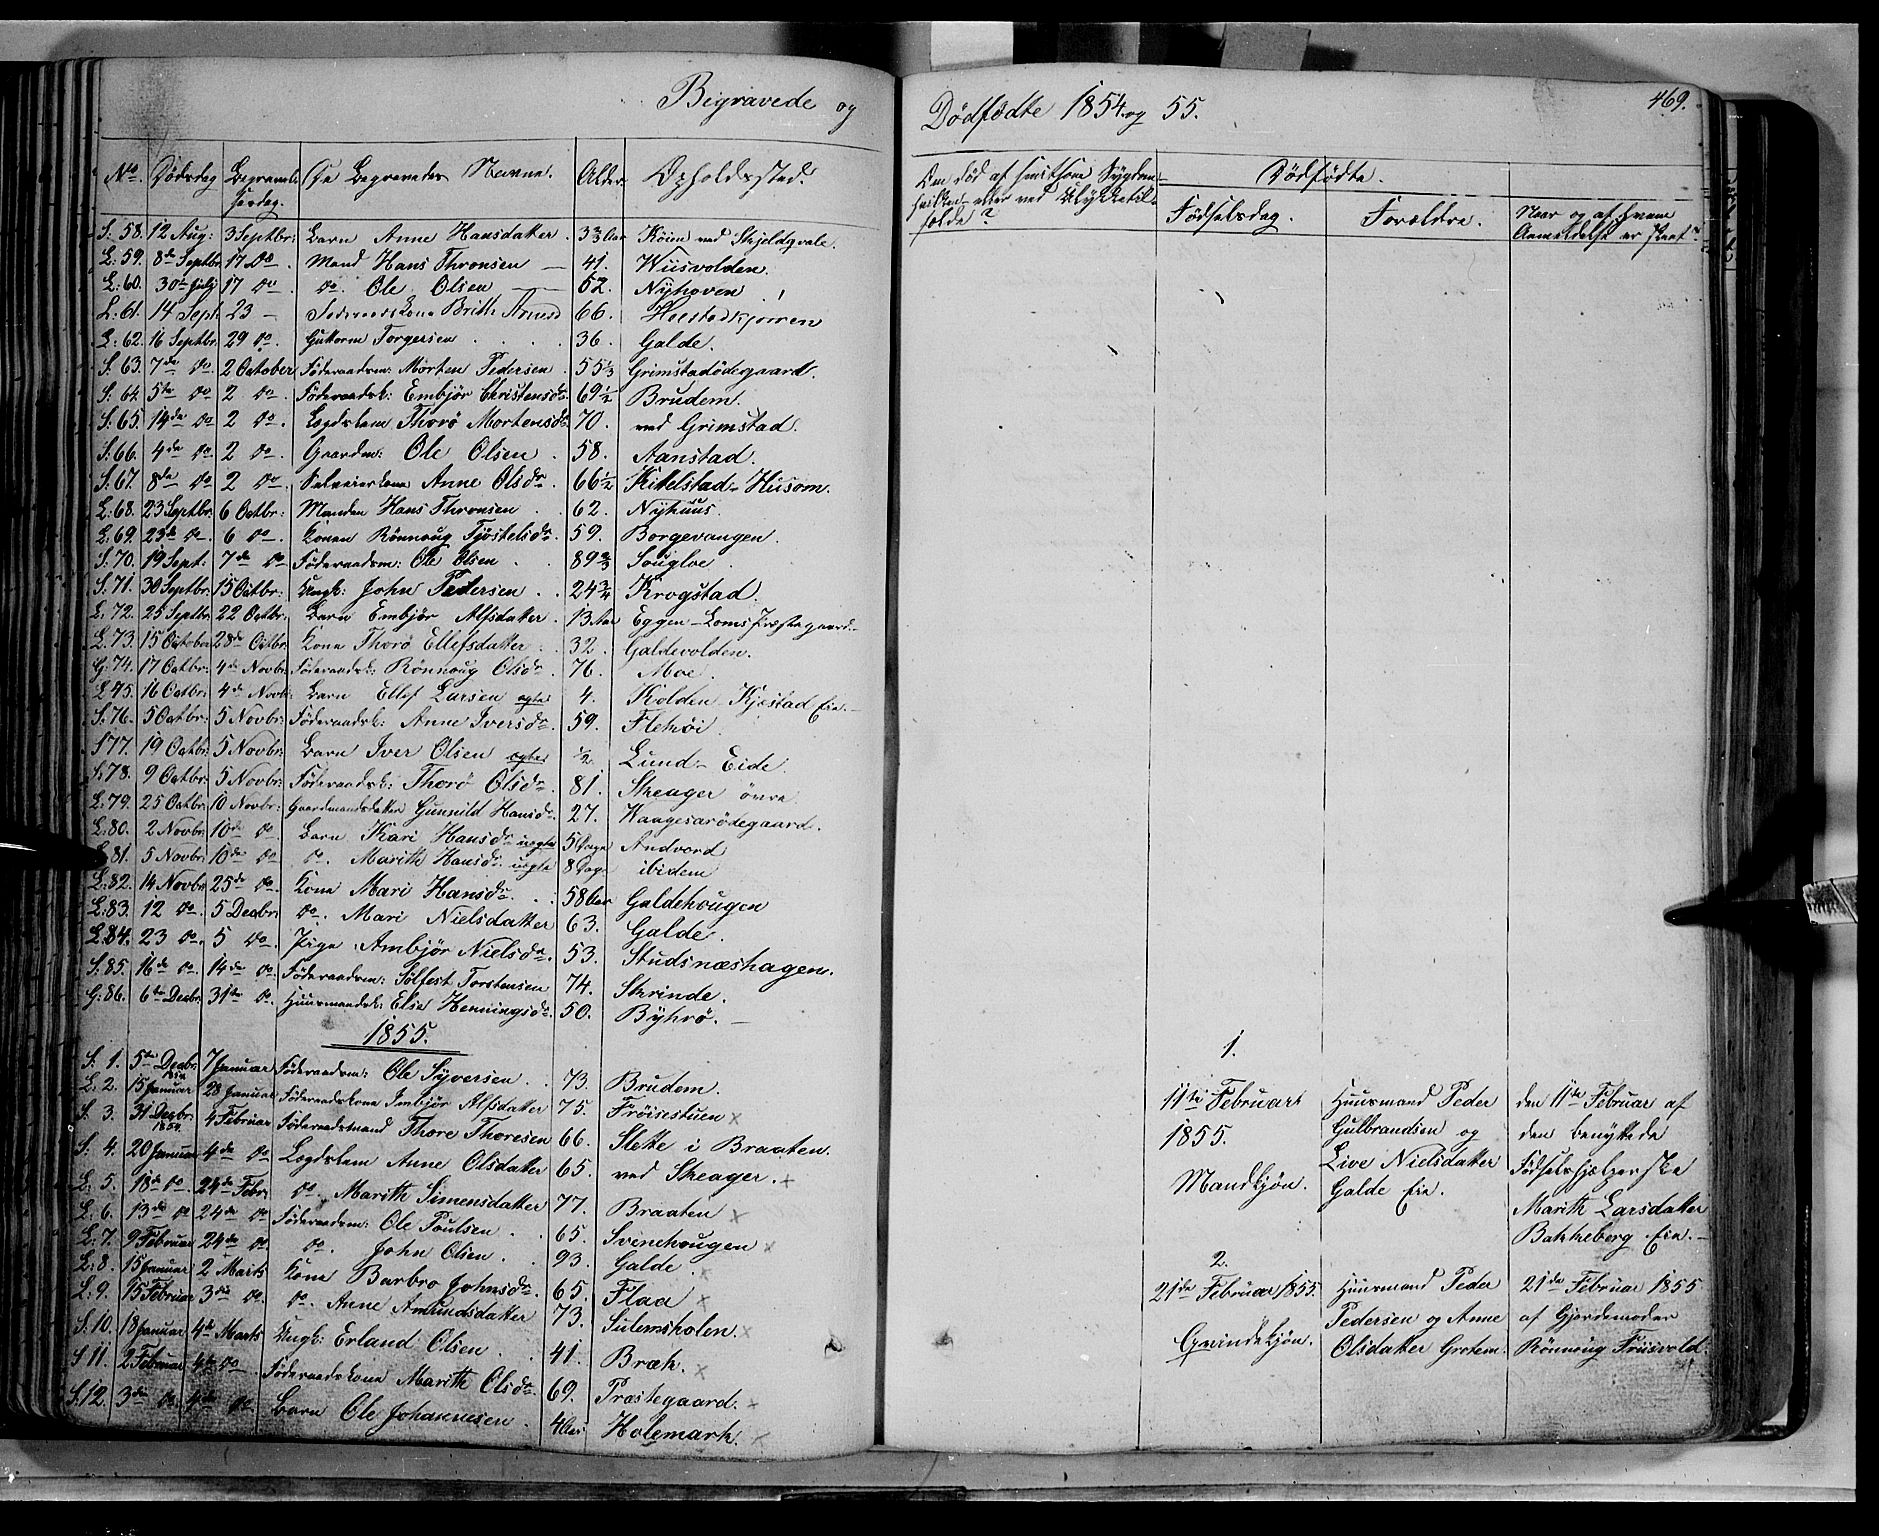 Begravede og
No. Dødsdag Begravelsesdag. De Begravedes Navne. Alder Opholdssted.
S: 58. 12 Aug: 3 Septbr: Barn Anne Hansdatter. Køien ved Skjeldqvale.
L: 59. 8de Septbr. 17 Do. Mand Hans Thronsen 41. Wiisvolden.
L: 60. 30te Julj 17 Do Do. Ole Olsen 52. Nyhoven
L: 61. 14 Sept. 23 – Føderaadskone Britte 66.
L: 62. 16 Septbr. 29 Do. Guttorm Torgersen 36. Galde.
S. 63. 7de Do. 2 October Føderaadsm: Morten Pedersen 55 1/3 Grimstadødegaard.
S: 64. 5te Do 2 Do. Føderaadsk: Embjør Christensdr. 69 1/2 Brudem.
S: 65. 14de Do 2 Do Lægdslem Thorø Mortensdr. 70. ved Grimstad.
S: 66. 4de Do 2 Do. Gaardm: Ole Olsen 58. Aanstad.
S: 67. 8de Do 2 Do Anne Olsdr. 66 1/2 Kitelstad - Husom.
L: 68. 23 Septbr. 6 Octbr: Manden Hans Thronsen 62. Nyhuus.
L: 69. 23de Do. 6 Do. Konen Rønnoug Tjøstelsdr. 59. Borgevangen.
S: 70. 19 Sept: 7de Do Føderaadsm: Ole Olsen 89 Sougloe.
S: 71. 30 Septbr: 15 Octbr: Ungk: John Pedersen 24 3/4 Krogstad.
L: 72. 25 Septbr. 22 Octbr: Barn Embjør Alfsdatter 13 Aar Eggen – Loms Præstegaard.
L: 73. 15 October 28de Octbr. Kone Thorø Ellefsdatter 32. Galdevolden.
G: 74. 17 Octbr: 4de Novbr. Føderaadsk: Rønnoug Olsdr. 76. Moe.
L: 75. 16 Octbr: 4de Novbr: Barn Ellef Larsen ægte 4. Kolden – Kjæstad Eie.
S: 76. 5 Octbr: 5 Novbr: Føderaadsk: Anne Iversdr. 59. Flekøi.
S 77. 19 Octbr: 5 Novbr: Barn Iver Olsen ægte 1/2. Lund – Eide.
S: 78. 9 Octbr: 5 Novbr: Føderaadsk: Thorø Olsdr. 81. Skeager øvre
L: 79. 25 Octbr: 10 Novbr: Gaardmandsdatter Gunnild Hansdr. 27. Waagesarødegaard.
L: 80. 2 Novbr: 10de Do. Barn Kari Hansdr. uægte 5 Dage Andvord
L 81. 5 Novbr: 10de Do Do. Marith Hansdr. uægte 8 Dage ibidem
L: 82. 14 Novbr: 25de Do. Kone Mari Hansdr. 58 Aar Galdehougen
L: 83. 12 Do. 5 Decbr: Do. Mari Nielsdatter 63. Galde.
L: 84. 23 Do. 5 Do. Pige Ambjør Nielsdr. 53. Studsnæshagen.
S. 85. 16de Do. 14de Do. Føderaadsm: Sølfest Torstensen 74. Skrinde.
G: 86. 6te Decbr. 31te Do. Huusmandsk: Elie Henningsdr. 50. Byhrø.
1855.
S. 1. 5te Decbr. 1854 7 Januar Føderaadsm: Ole Syversen 73. Brudem.
L: 2. 15 Januar 28 Januar Føderaadskone Imbjør Alfsdatter 75. Frøisestuen x
S. 3. 31 Decbr. 1854. 4 Februar Føderaadsmand Thore Thoresen 66. Slette i Braaten.
S. 4. 20 Januar 4de Do Lægdslem Anne Olsdatter 65. ved Skeager. x
L. 5. 18de Do. 24de Febr. Do. Marith Simensdatter 77. Braaten x
L: 6. 13de Do 24de Do Føderaadsm: Ole Poulsen 65. Svenehougen x
L: 7. 9 Februar 24de Do Do. John Olsen 93. Galde. x
L: 8. 15 Januar 2 Marts Kone Barbro Johnsdr. 65. Flaa x
L: 9. 15 Februar 3die Do. Do. Anne Amundsdatter 73. Sulemsholen. x
S: 10. 18 Januar 4de Marts Ungk: Erland Olsen 41. Bræk. x
S 11. 2 Februar 4de Do Føderaadskone Marith Olsdr. 69. Præstegaard. x
S. 12. 3de Do. 4de Do. Barn Ole Johannesen 4 Aar Holemark. x
Dødfødte 1854 og 55.
469.
Om død af smitsom Sygdom
eller ved Ulykketil-
fælde?
Dødfødte.
Fødselsdag. Forældre. Naar og af hvem
Anmeldelse er skeet?
1.
11te Februart
1855.
Mandkjøn.
Huusmand Peder
Gulbrandsen og
Live Nielsdatter
Galde Eie.
den 11te Februar af
den benyttede
Fødselshjælperske
Marith Larsdatter
Bakkeberg Eie.
2.
21de Februar 1855.
Qvindekjøn.
Huusmand Peder
Pedersen og Anne
Olsdatter Grotem.
21de Februar 1855
af Gjordemoder
Rønnoug Friisvold.